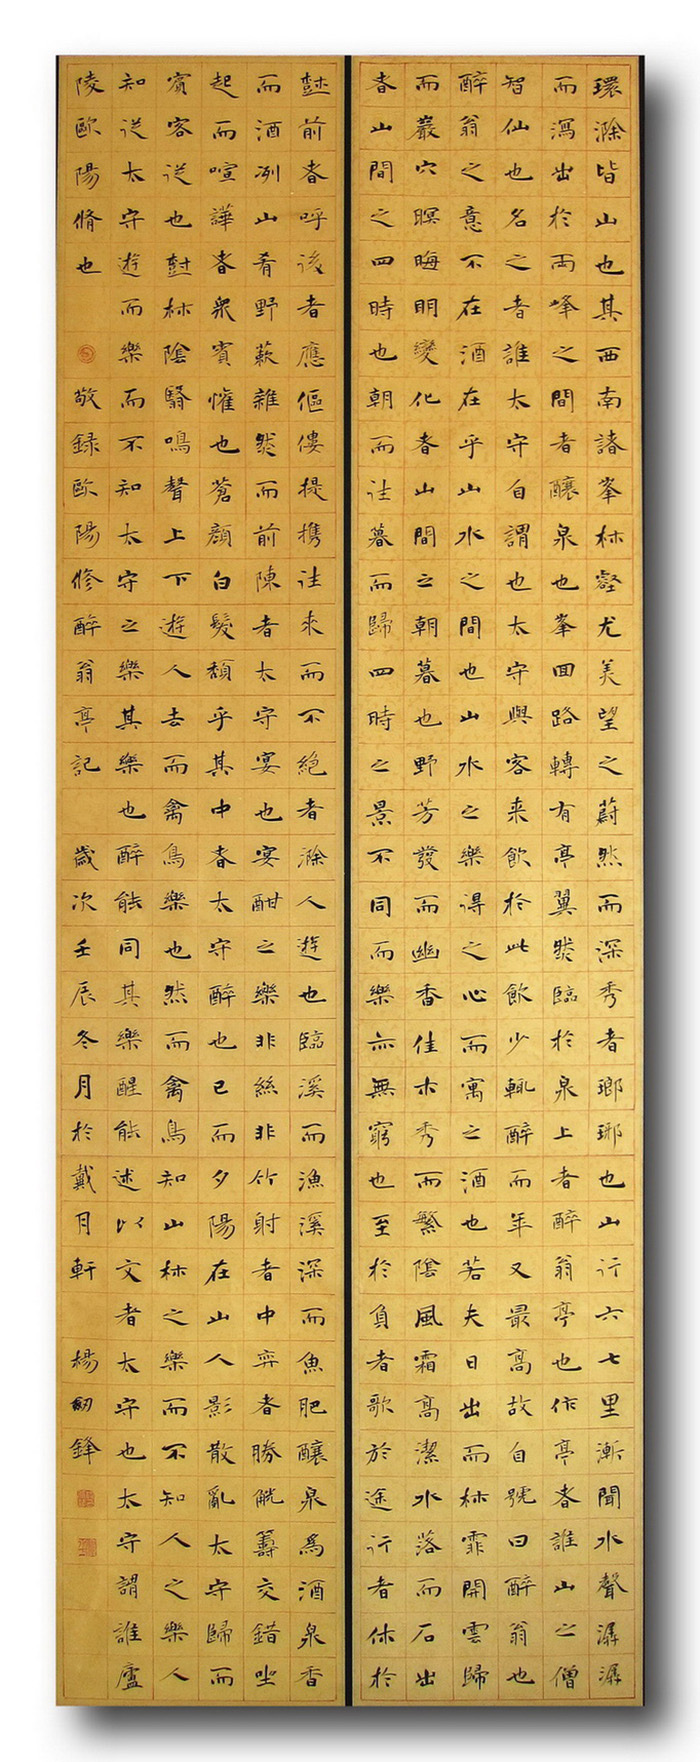 環滁皆山也其西南諸峯林壑尤美望之蔚然而深秀者瑯琊也山行六七里漸聞水聲潺潺
而瀉出於兩峰之間者釀泉也峯回路轉有亭翼然臨於泉上者醉翁亭也作亭者誰山之僧
智仙也名之者誰太守自謂也太守與客来飲於此飲少輒醉而年又最高故自號曰醉翁也
醉翁之意不在酒在乎山水之間也山水之樂得之心而寓之酒也若夫日出而林霏開雲歸
而巖穴暝晦明變化者山間之朝暮也野芳發而幽香佳木秀而繁陰風霜高潔水落而石出
者山間之四時也朝而往暮而歸四時之景不同而樂亦無窮也至於負者歌於途行者休於
樹前者呼後者應傴僂提携往來而不絕者滁人遊也臨溪而漁溪深而魚肥釀泉為酒泉香
而酒洌山肴野蔌雜然而前陳者太守宴也宴酣之樂非絲非竹射者中弈者勝觥籌交錯坐
起而喧譁者衆賓懽也蒼顏白髮頹乎其中者太守醉也已而夕陽在山人影散亂太守歸而
賓客從也樹林陰翳鳴聲上下遊人去而禽鳥樂也然而禽鳥知山林之樂而不知人之樂人
知從太守遊而樂而不知太守之樂其樂也醉能同其樂醒能述以文者太守也太守謂誰廬
陵歐陽脩也 敬録歐陽修醉翁亭記 歲次壬辰冬月於戴月軒 楊劍鋒